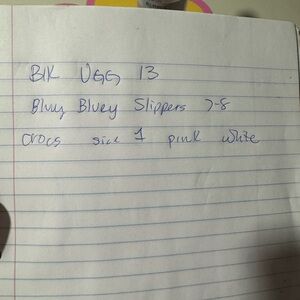 Blk UGG 13
Bluy Bluey Slippers 7-8
crocs size 1 pink white